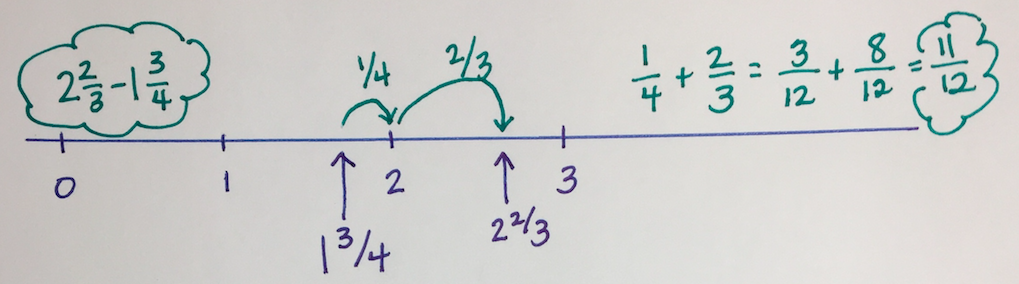 2 2/3 - 1 3/4
1/4 2/3
1/4 + 2/3 = 3/12 + 8/12 = 11/12
0 1 2 3
1 3/4 2 2/3